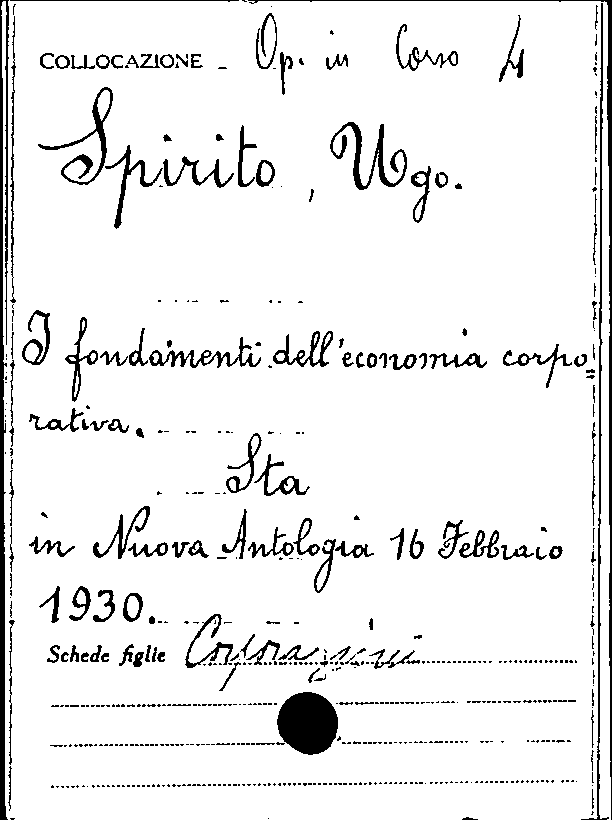 COLLOCAZIONE - Op. in Corso 4
Spirito, Ugo.
I fondamenti dell'economia corpo=
rativa.
Sta
in Nuova Antologia 16 Febbraio
1930.
Schede figlie Corporazioni